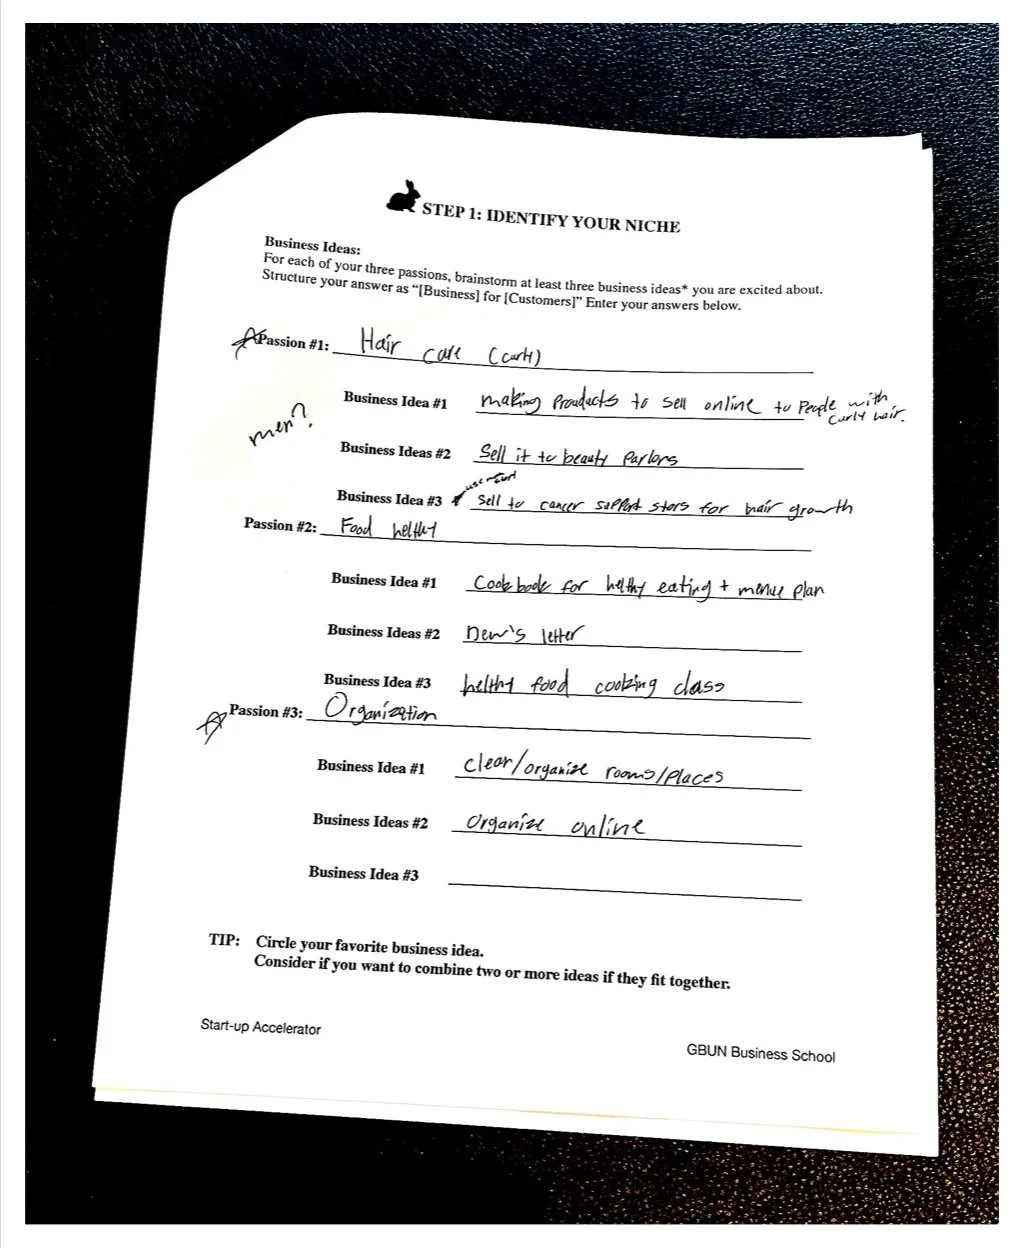 STEP 1: IDENTIFY YOUR NICHE
Business Ideas:
For each of your three passions, brainstorm at least three business ideas* you are excited about.
Structure your answer as “[Business] for [Customers]” Enter your answers below.
Passion #1: Hair care (curl)
Business Idea #1 making Products to sell online to People with
curly hair.
men?
Business Ideas #2 Sell it to beauty Parlors
Business Idea #3 sell to cancer support stors for hair growth
Passion #2: Food helthy
Business Idea #1 Cook book for helthy eating + menue plan
Business Ideas #2 New's letter
Business Idea #3 helthy food cooking class
Passion #3: Organization
Business Idea #1 clean/organize rooms/places
Business Ideas #2 organize online
Business Idea #3
TIP: Circle your favorite business idea.
Consider if you want to combine two or more ideas if they fit together.
Start-up Accelerator
GBUN Business School